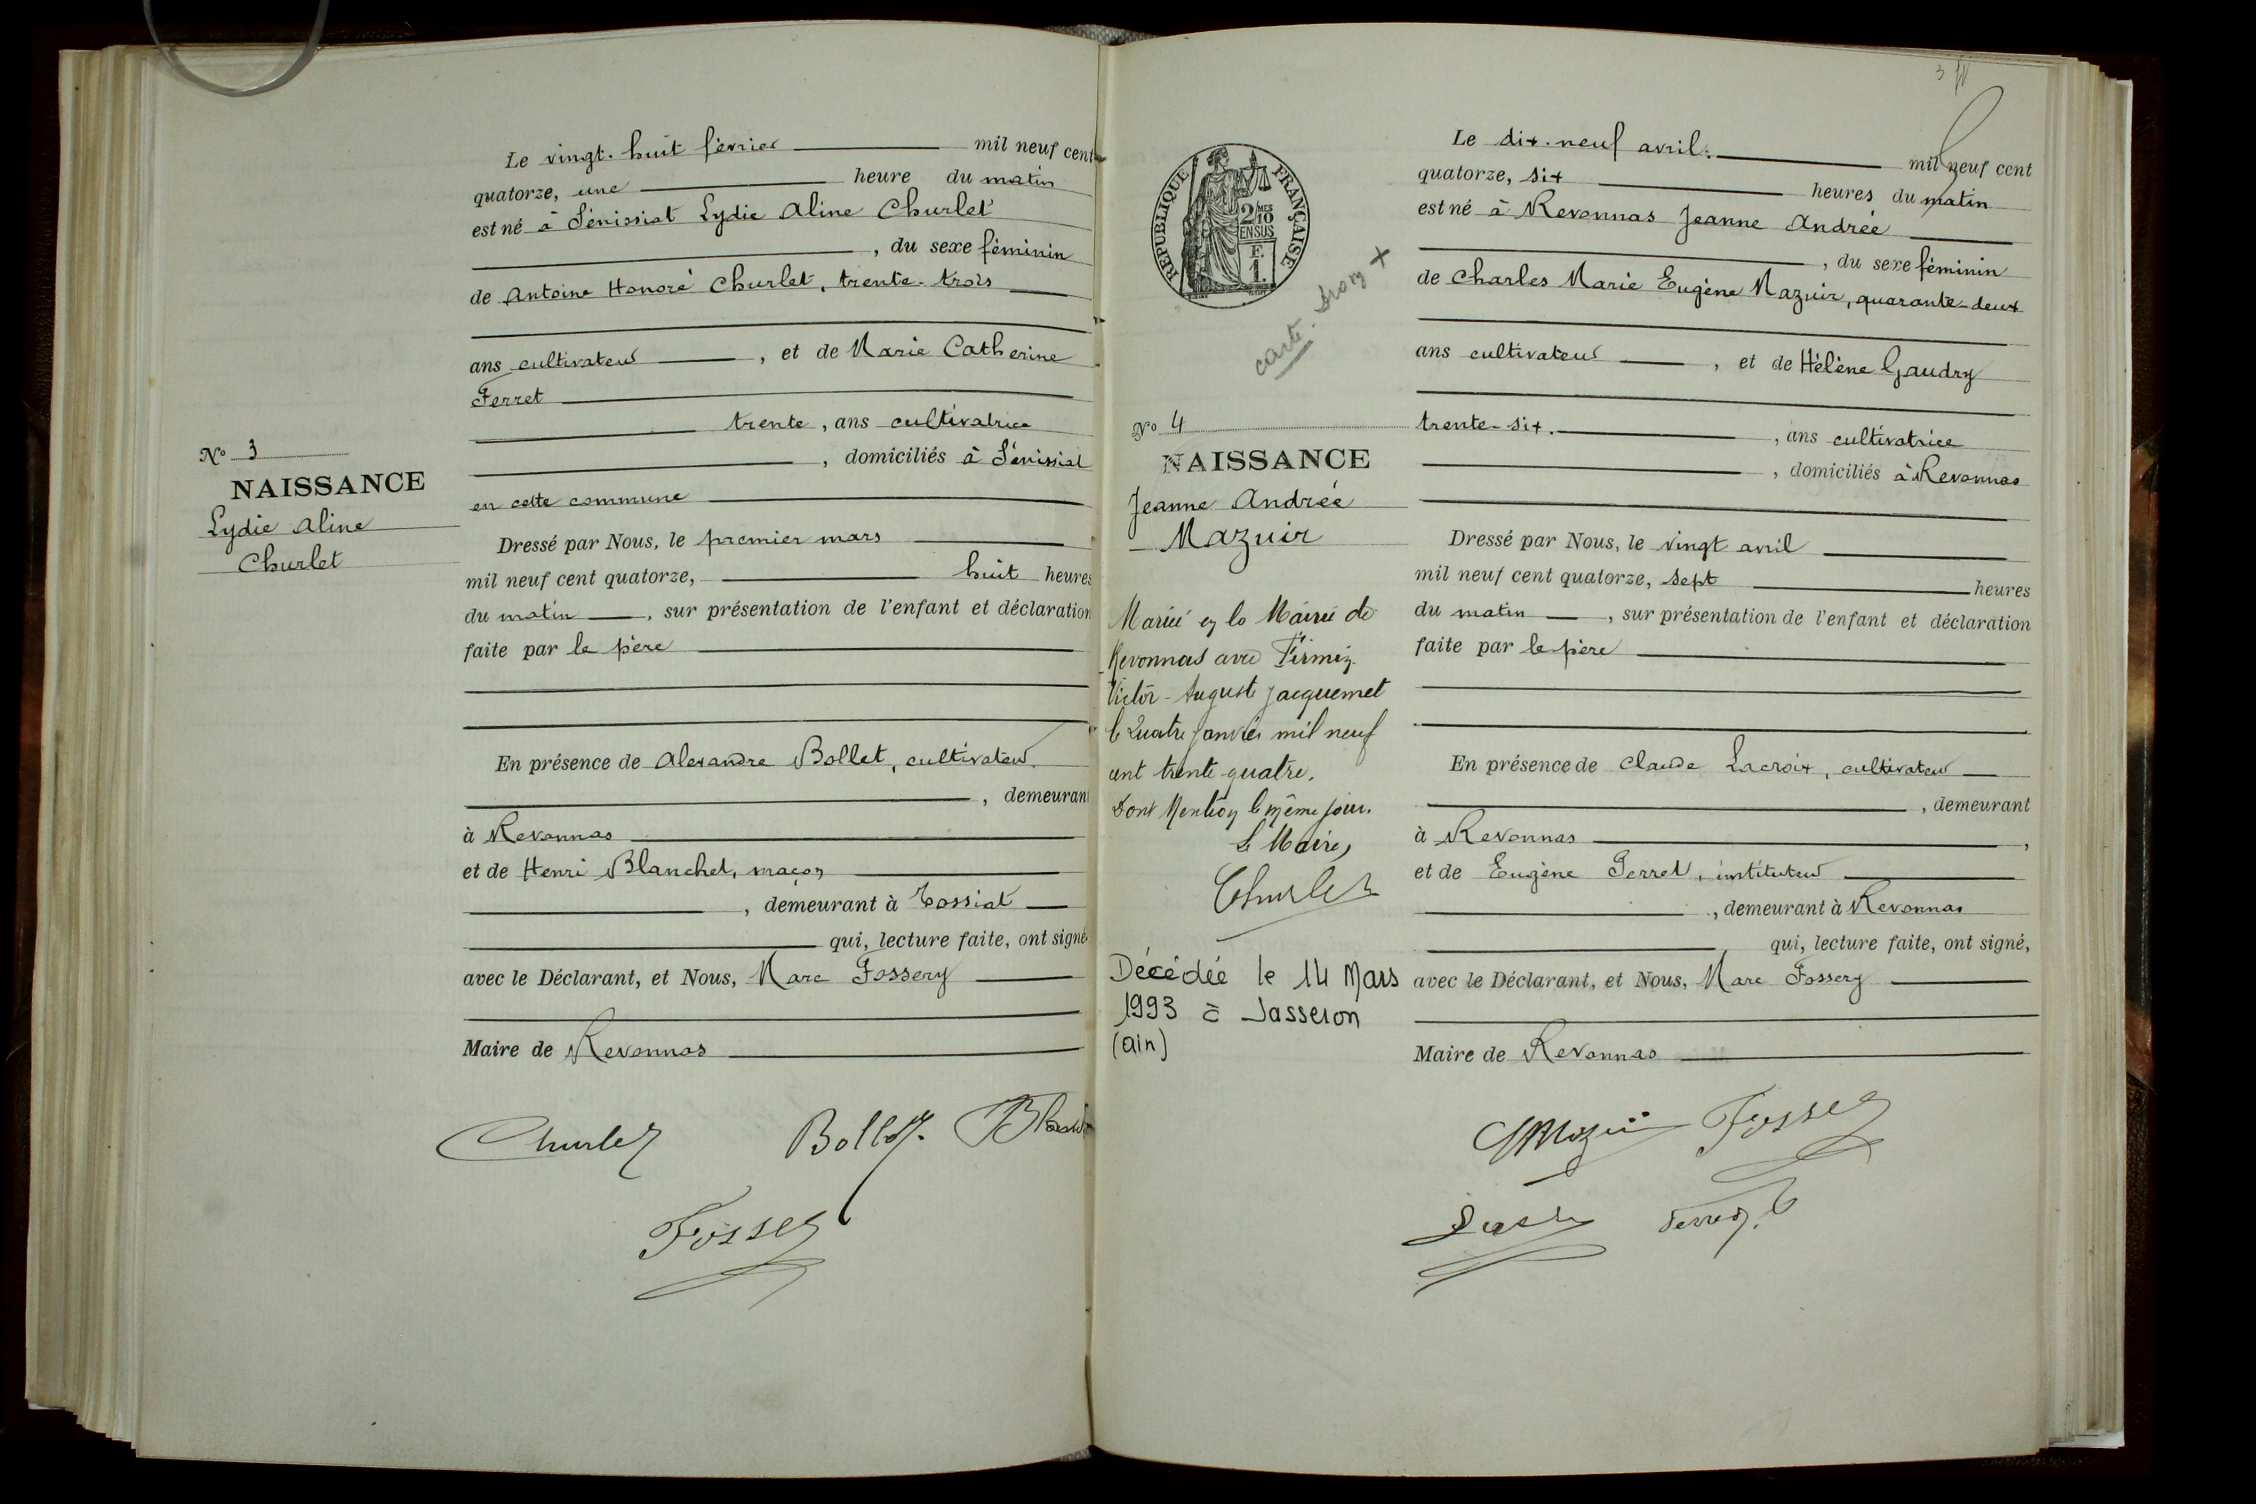 Le vingt-huit février mil neuf cent
quatorze, une heure du matin
est né à Sénissiat Lydie Aline Churlet
, du sexe féminin
de Antoine Honoré Churlet, trente-trois
ans cultivateur, et de Marie Catherine
Ferret
trente, ans cultivatrice
, domiciliés à Sénissiat
en cette commune
No 3
NAISSANCE
Lydie Aline
Churlet
Dressé par Nous, le premier mars
mil neuf cent quatorze, huit heures
du matin, sur présentation de l'enfant et déclaration
faite par le père
En présence de Alexandre Bollet, cultivateur
, demeurant
à Revonnas
et de Henri Blanchet, maçon
, demeurant à Tossiat
qui, lecture faite, ont signé
avec le Déclarant, et Nous, Marc Fossery
Maire de Revonnas
Churlet Bollet
Le dix-neuf avril mil neuf cent
quatorze, six heures du matin
est né à Revonnas Jeanne Andrée
, du sexe féminin
de Charles Marie Eugène Mazuir, quarante-deux
ans cultivateur, et de Hélène Gaudry
trente-six, ans cultivatrice
, domiciliés à Revonnas
RÉPUBLIQUE FRANÇAISE
2 MES
10
EN SUS
F.
1.
carte
No 4
NAISSANCE
Jeanne Andrée
Mazuir
Mariée en la Mairie de
Revonnas avec Firmin
Victor-Auguste Jacquemet
le Quatre Janvier mil neuf
cent trente-quatre.
Dont Mention le même jour.
Le Maire,
Churlet
Décédée le 14 Mars
1993 à Jasseron
(Ain)
Dressé par Nous, le vingt avril
mil neuf cent quatorze, sept heures
du matin, sur présentation de l'enfant et déclaration
faite par le père
En présence de Claude Lacroix, cultivateur
, demeurant
à Revonnas,
et de Eugène Perret, instituteur
, demeurant à Revonnas
qui, lecture faite, ont signé,
avec le Déclarant, et Nous, Marc Fossery
Maire de Revonnas